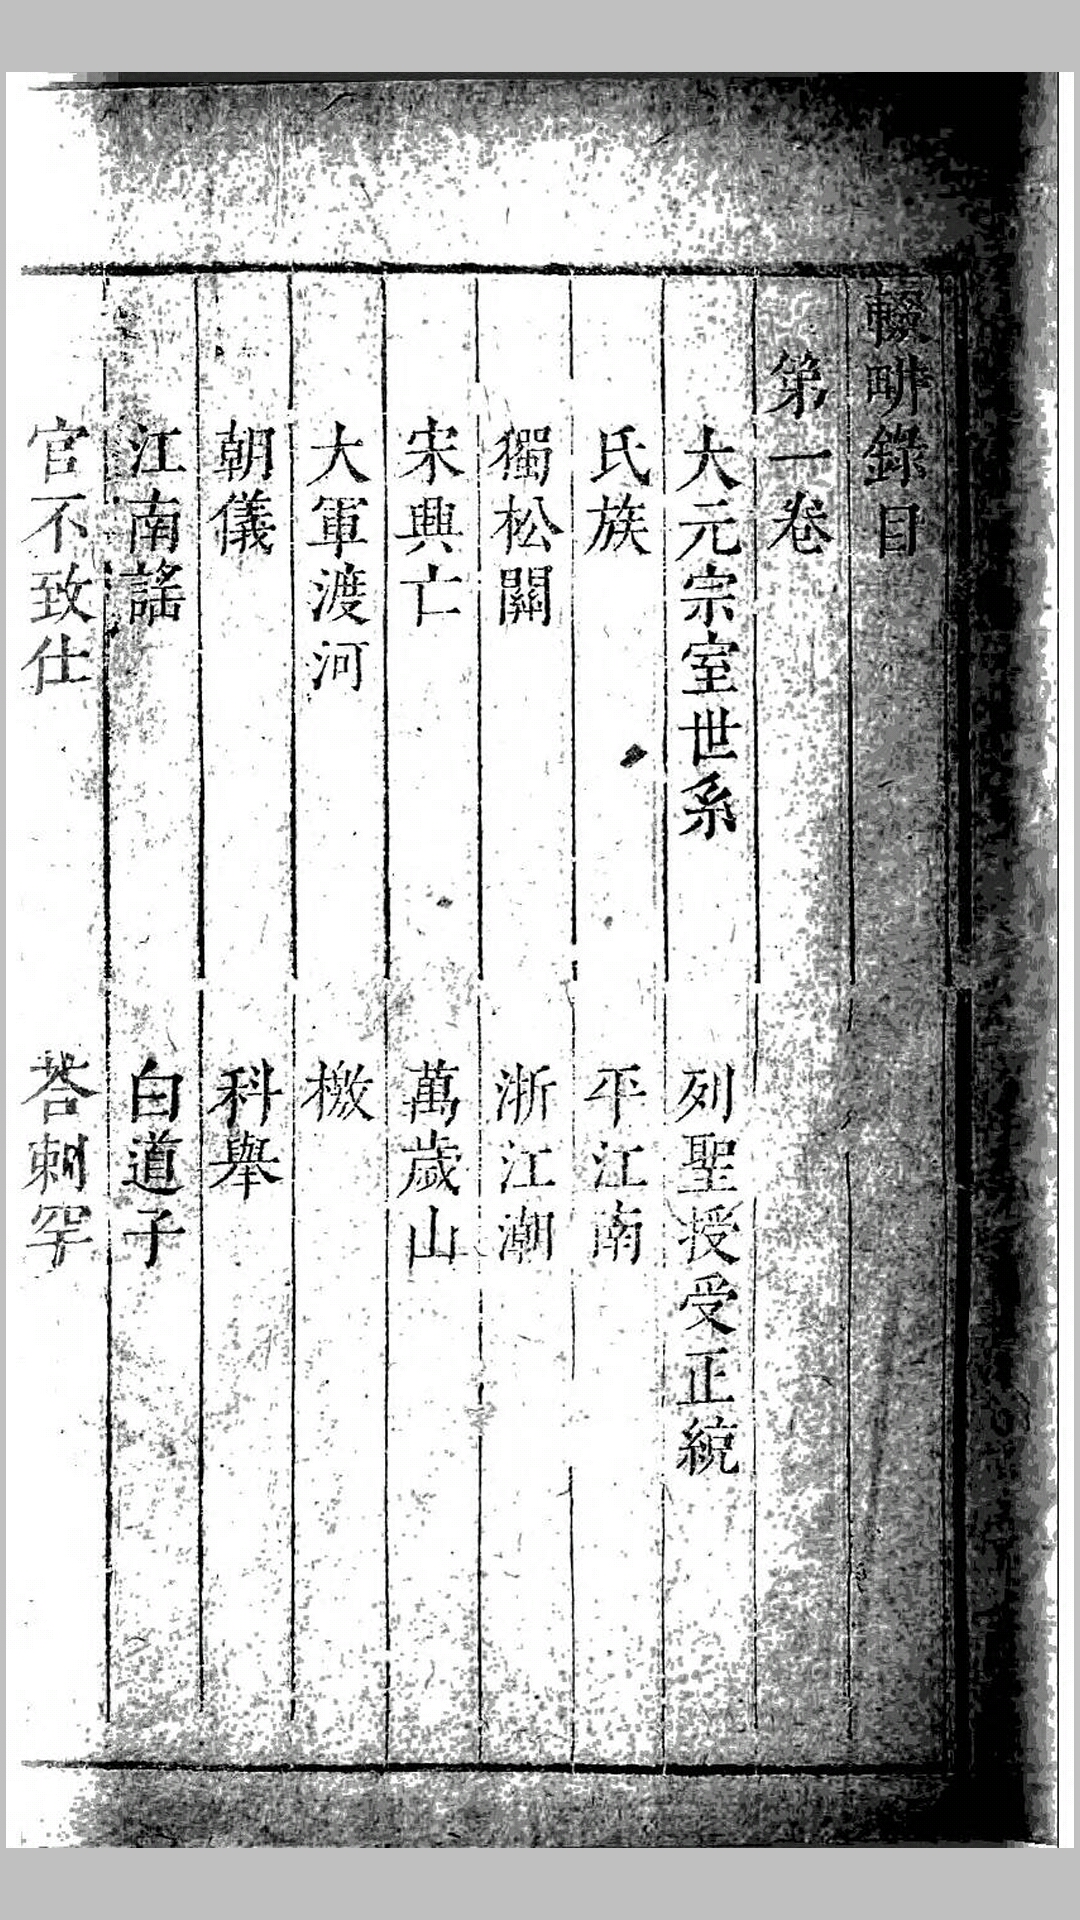 輟畊錄目
第一卷
大元宗室世系　列聖授受正統
氏族　平江南
獨松關　浙江潮
宋興亡　萬歲山
大軍渡河　檄
朝儀　科舉
江南謠　白道子
官不致仕　荅剌罕